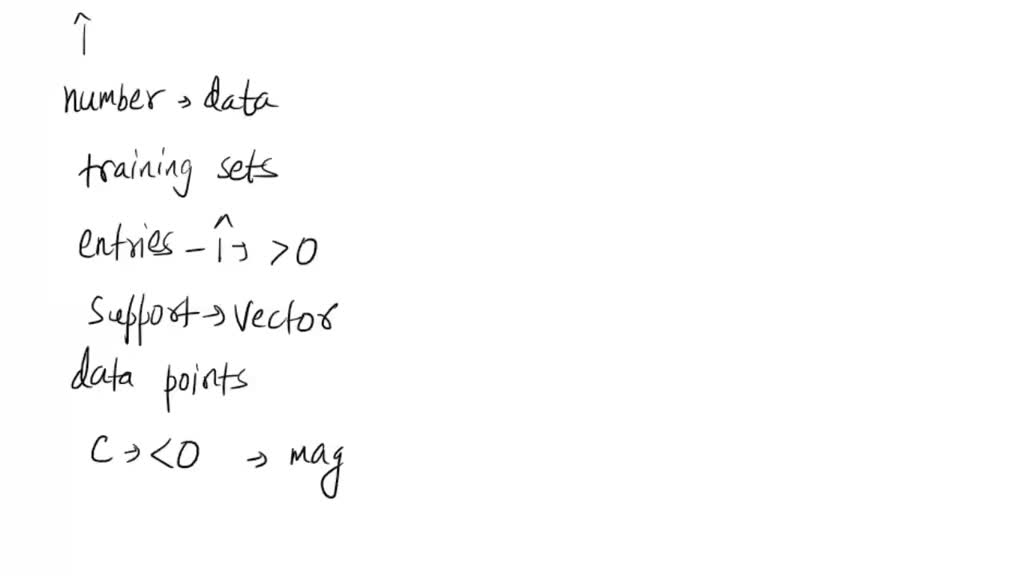 î
number → data
training sets
entries - î → >0
Support → Vector
data points
C → <0 → mag